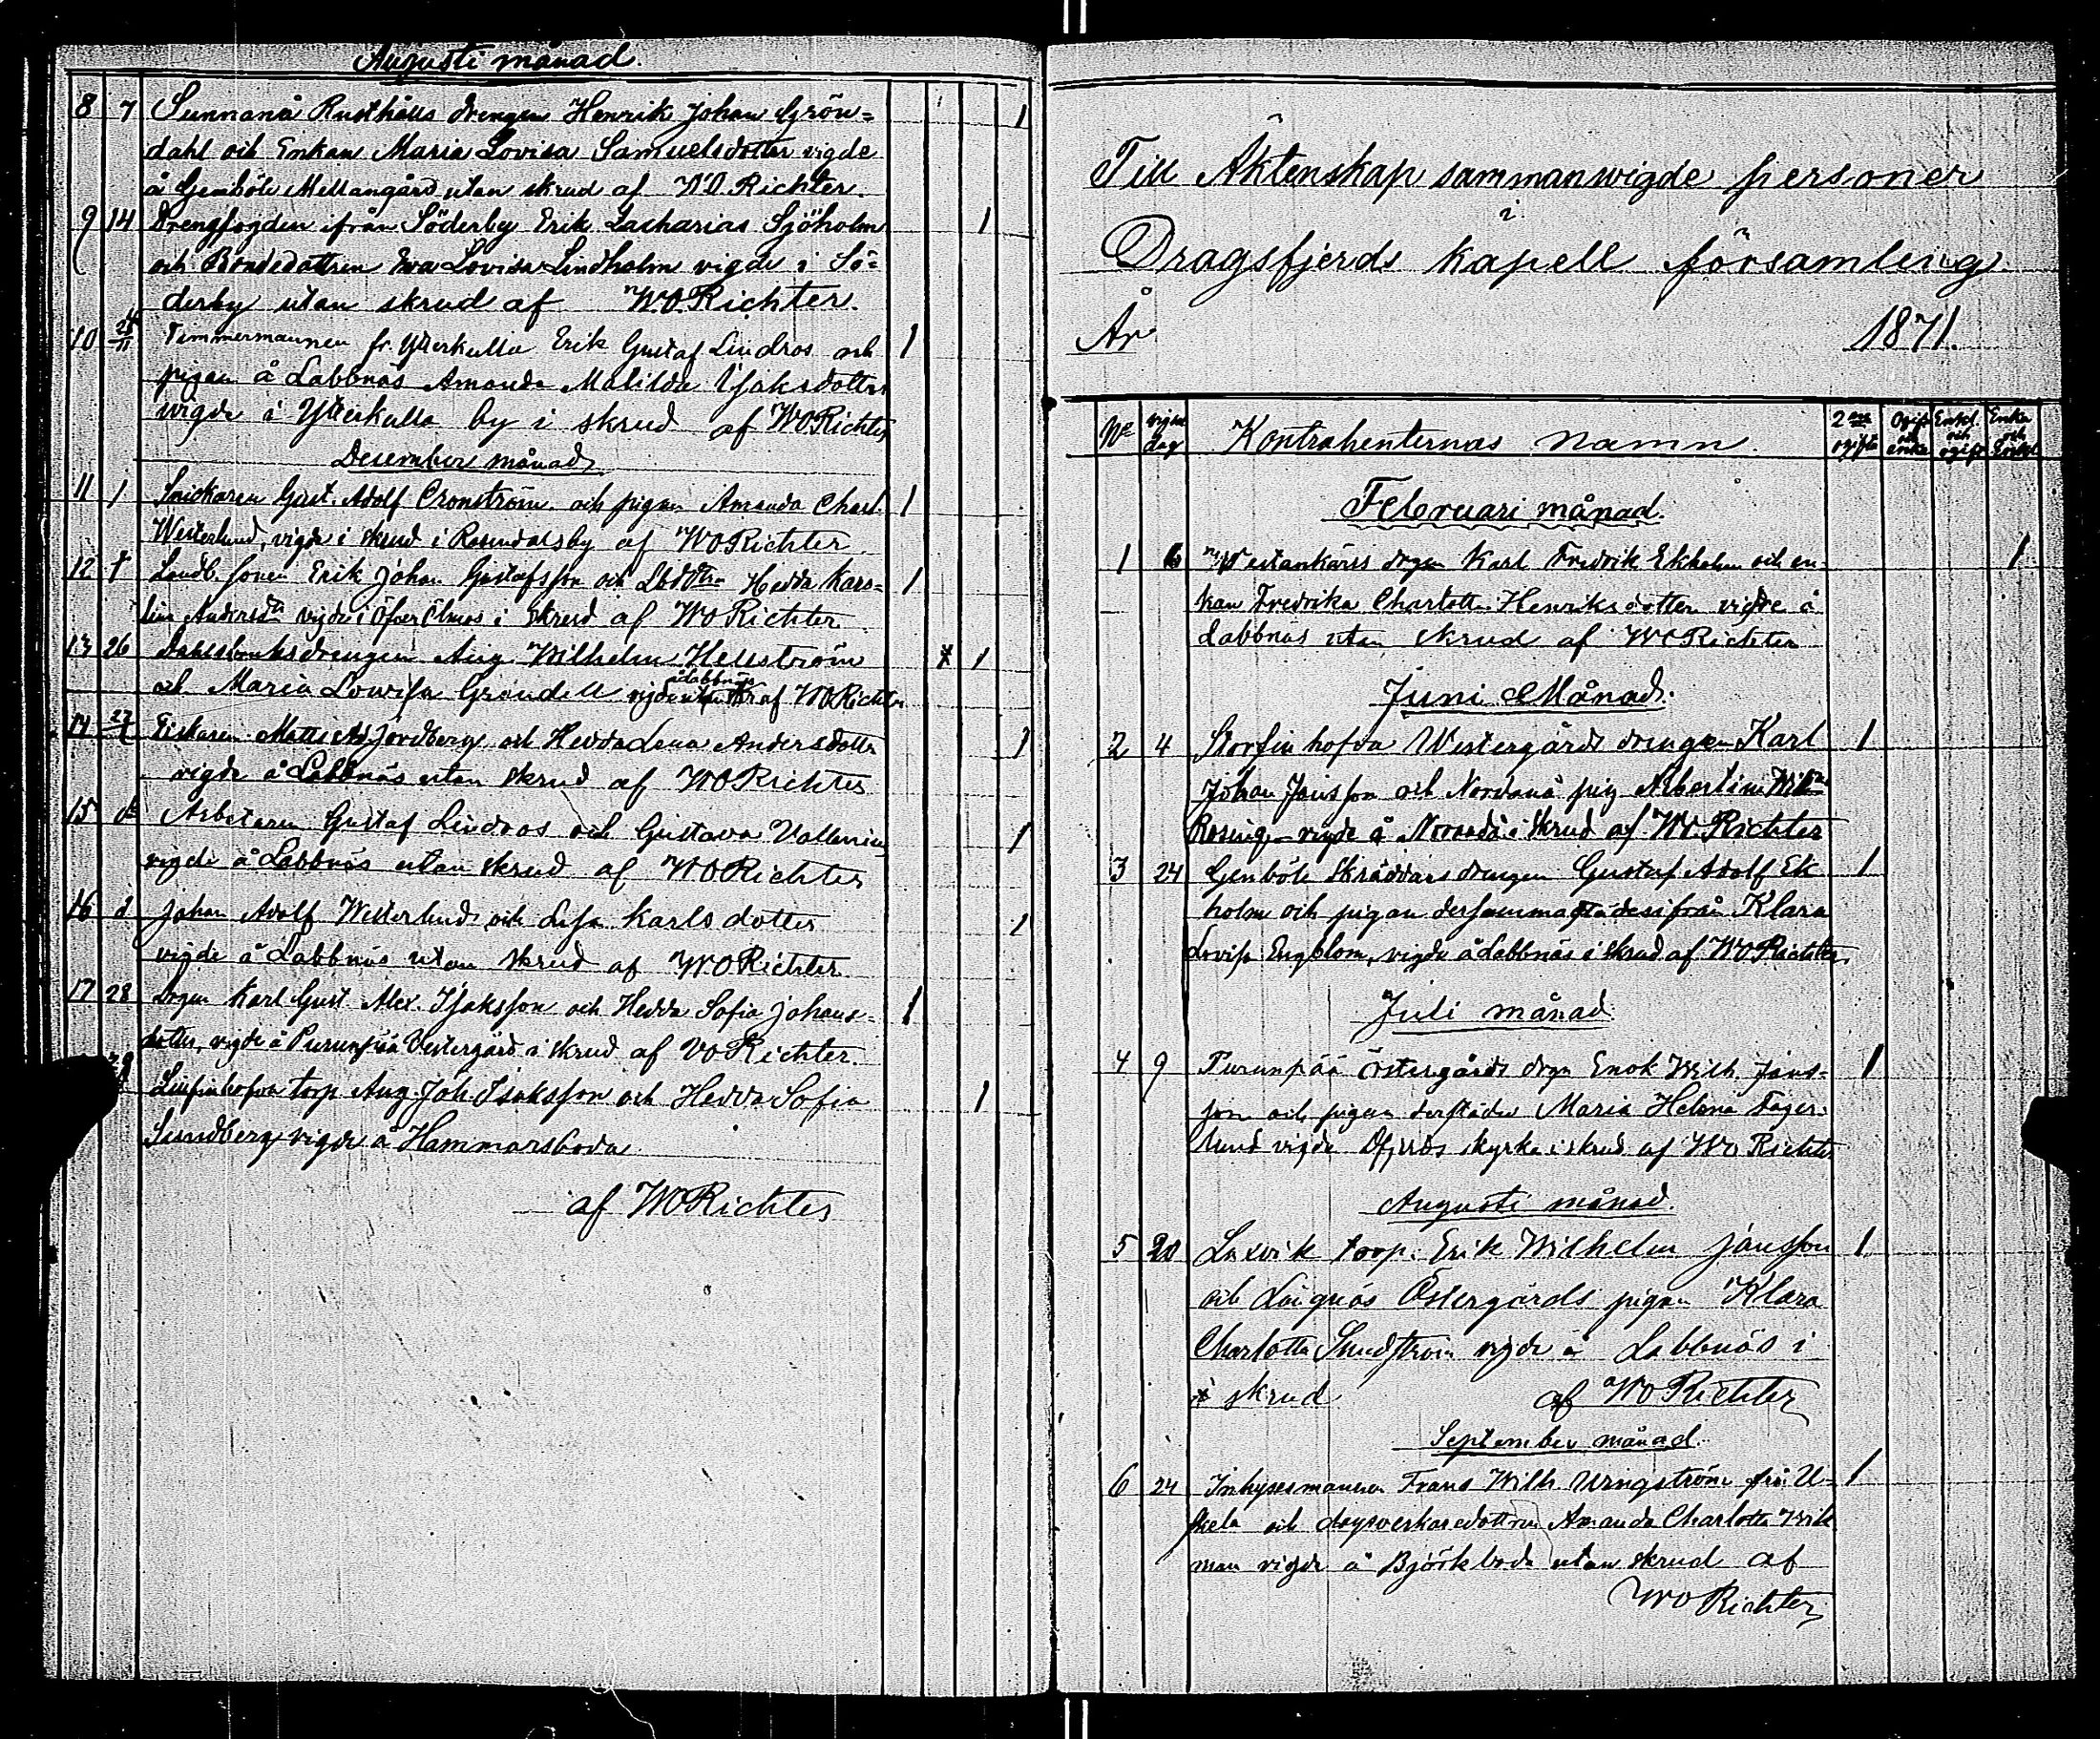 Augusti månad.
8 7 Sunnanå Rusthålls drengen Henrik Johan Grön= 1
dahl och Enkan Maria Lovisa Samuelsdotter vigde
å Genböle Mellangård utan skrud af W.O. Richter.
9 14 Drengfogden ifrån Söderby Erik Zacharias Sjöholm 1
och Bondedottren Eva Lovisa Lindholm vigde i Sö=
derby utan skrud af W.O. Richter.
10 Timmermannen fr. Ytterkulla Erik Gustaf Lindros och 1
pigan å Labbnäs Amanda Matilda Isaksdotter
wigde å Ytterkulla by i skrud af WO Richter
December månad
11 1 Snickaren Gust. Adolf Cronström och pigan Amanda Charl. 1
Westerlund, vigde i skrud i Rosendalsby af WO Richter
12 Landb. sonen Erik Johan Gustafsson och Hedda Karo= 1
lina vigde i Öfver Ölmos i skrud af WO Richter
13 26 Dahlsbruksdrengen Aug. Wilhelm Hellström 1
å Labbnäs
och Maria Lowisa Gröndell vigde utan skr af WO Richter
14 27 Fiskaren Matts Jordberg och Hedda Lena Andersdotter 1
vigde å Labbnäs utan skrud af WO Richter
15 d Arbetaren Gustaf Lindroos och Gustava Vallenius 1
vigde å Labbnäs utan skrud af WO Richter
16 d Johan Adolf Westerlund och Lisa Karlsdotter 1
vigde å Labbnäs utan skrud af WO Richter
17 28 Drgen Karl Gust. Alex. Isaksson och Hedda Sofia Johans= 1
dotter, vigde å Purunpää Vestergård i skrud af WO Richter.
torp Aug. Joh. Isaksson och Hedda Sofia 1
Sundberg vigde å Hammarsboda
af WO Richter
Till Äktenskap sammanwigde personer
i
Dragsfjerds kapell församling
År 1871.
No vign. dag Kontrahenternas namn. 2ne ogifta Ogift och enka Enkl. och ogift Enka och Enkel
Februari månad.
1 6 Vestankärrs drgen Karl Fredrik Ekholm och en= 1
kan Fredrika Charlotta Henriksdotter vigde å
Labbnäs utan skrud af WO Richter
Juni Månad.
2 4 Storfinhofva Westergårds drengen Karl 1
Johan Jansson och Nordanå pig Albertina
Rosing vigde å Nordanå i skrud af WO Richter
3 24 Genböle Skräddars drengen Gustaf Adolf Ek 1
holm och pigan dersammastädes ifrån Klara
Lovisa Engblom, vigde å Labbnäs i skrud af WO Richter.
Juli månad
4 9 Purunpää Östergårds drgn Enok Wilh. Jans= 1
son och pigan derstädes Maria Helena Fager=
lund vigde Dfjerds kyrka i skrud af WO Richter
Augusti månad.
5 20 Laxvik torp. Erik Wilhelm Jansson 1
och Långnäs Östergårds pigan Klara
Charlotta Sundström vigde å Labbnäs i
i skrud af WO Richter
September månad.
6 24 Inhysesmannen Frans Wilh. Wringström från U= 1
skela och dagsverkaredottren Amanda Charlotta Wik
man vigde å Björkboda utan skrud af
WO Richter